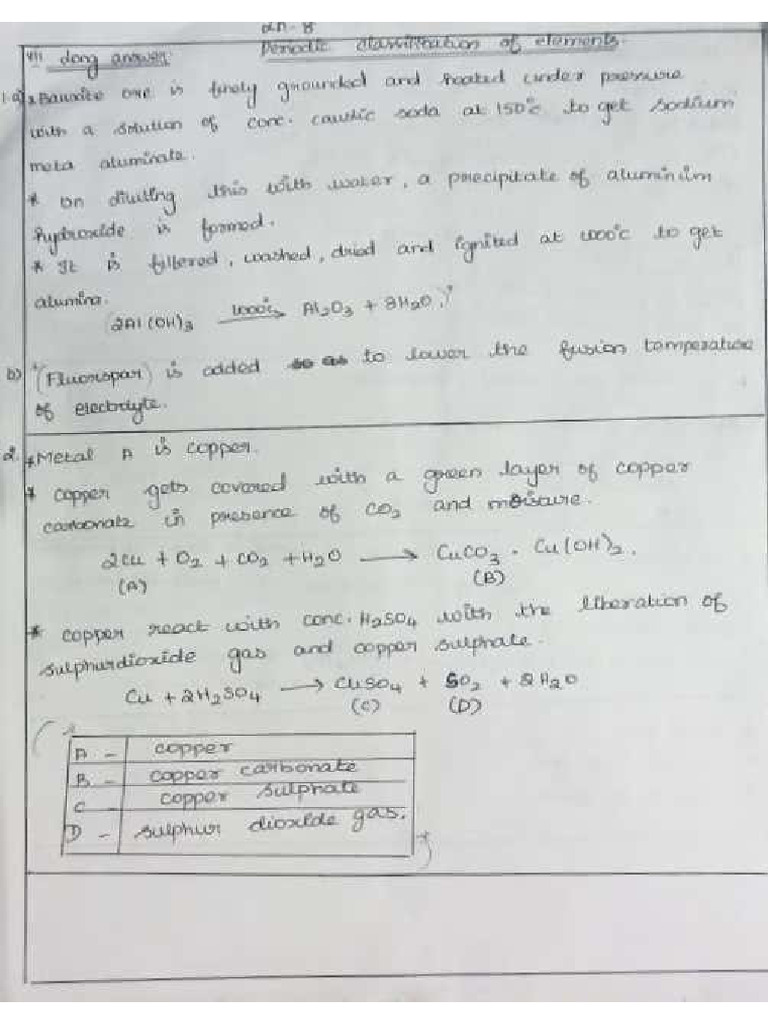 Ln - 8
VIII Long answer. Periodic classification of elements.
1.a) * Bauxite ore is finely grounded and heated under pressure
with a solution of conc. caustic soda at 150°c to get sodium
meta aluminate.
* On diluting this with water, a precipitate of aluminium
hydroxide is formed.
* It is filtered, washed, dried and ignited at 1000°c to get
alumina.
2Al(OH)3 —1000°c→ Al2O3 + 3H2O.
b) * (Fluorspar) is added to lower the fusion temperature
of electrolyte.
2. * Metal A is copper.
* copper gets covered with a green layer of copper
carbonate in presence of CO2 and moisture.
2Cu + O2 + CO2 + H2O → CuCO3 . Cu(OH)2.
(A) (B)
* copper react with conc. H2SO4 with the liberation of
sulphurdioxide gas and copper sulphate.
Cu + 2H2SO4 → CuSO4 + SO2 + 2H2O
(C) (D)
A - copper
B - copper carbonate
C - copper sulphate
D - sulphur dioxide gas.